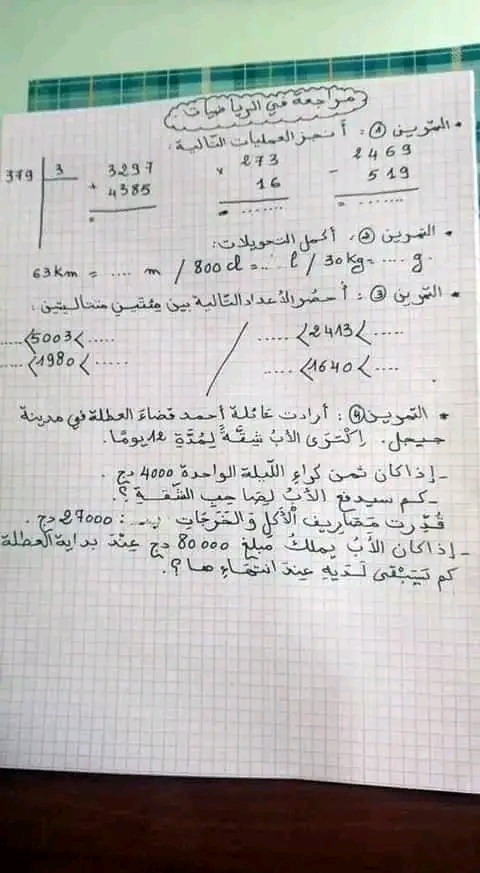 مراجعة في الرياضيات
• التمرين ①: أنجز العمليات التالية:
379 | 3
3297 + 4385 = ......
273 × 16 = ......
2469 - 519 = ......
• التمرين ②: أكمل التحويلات:
63km = .... m / 800cl = ... l / 30kg = .... g.
• التمرين ③: أحصر الأعداد التالية بين مئتين متتاليتين:
.....〈5003〈..... / .....〈2413〈.....
.....〈1980〈..... / .....〈1640〈.....
• التمرين ④: أرادت عائلة أحمد قضاء العطلة في مدينة
جيجل. اكترى الأب شقة لمدة 12 يوما.
- إذا كان ثمن كراء الليلة الواحدة 4000 دج.
- كم سيدفع الأب لصاحب الشقة؟.
قدرت مصاريف الأكل والخرجات بـ: 27000 دج.
- إذا كان الأب يملك مبلغ 80000 دج عند بداية العطلة
كم تبقى لديه عند انتهاءها؟.